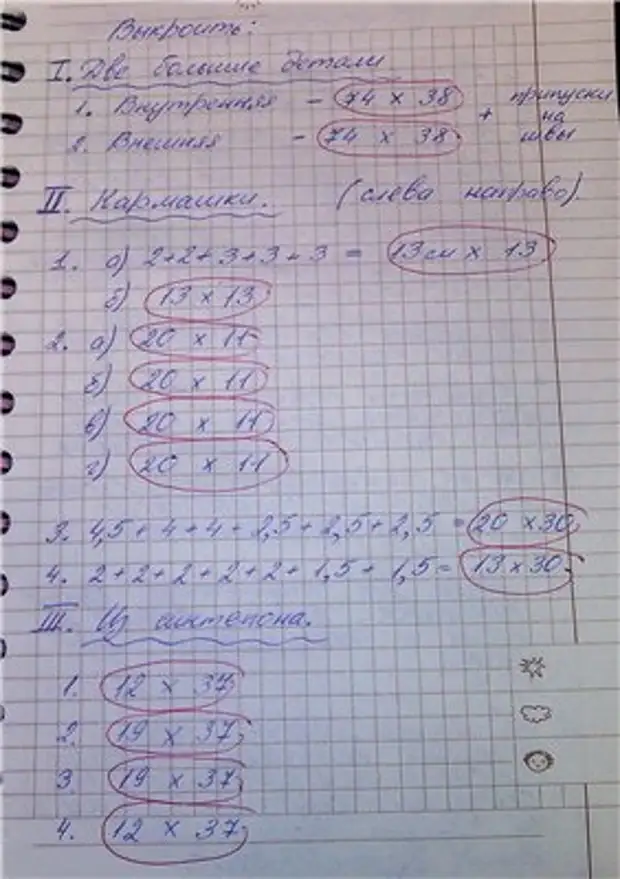 Выкроить:
I. Две большие детали
1. Внутренняя - 74 x 38
2. Внешняя - 74 x 38
+ припуски на швы
II. Кармашки. (слева направо).
1. а) 2+2+3+3+3 = 13 см x 13
б) 13 x 13
2. а) 20 x 11
б) 20 x 11
в) 20 x 11
г) 20 x 11
3. 4,5+4+4+2,5+2,5+2,5 = 20 x 30
4. 2+2+2+2+2+1,5+1,5 = 13 x 30
III. Из синтепона.
1. 12 x 37
2. 19 x 37
3 19 x 37
4. 12 x 37